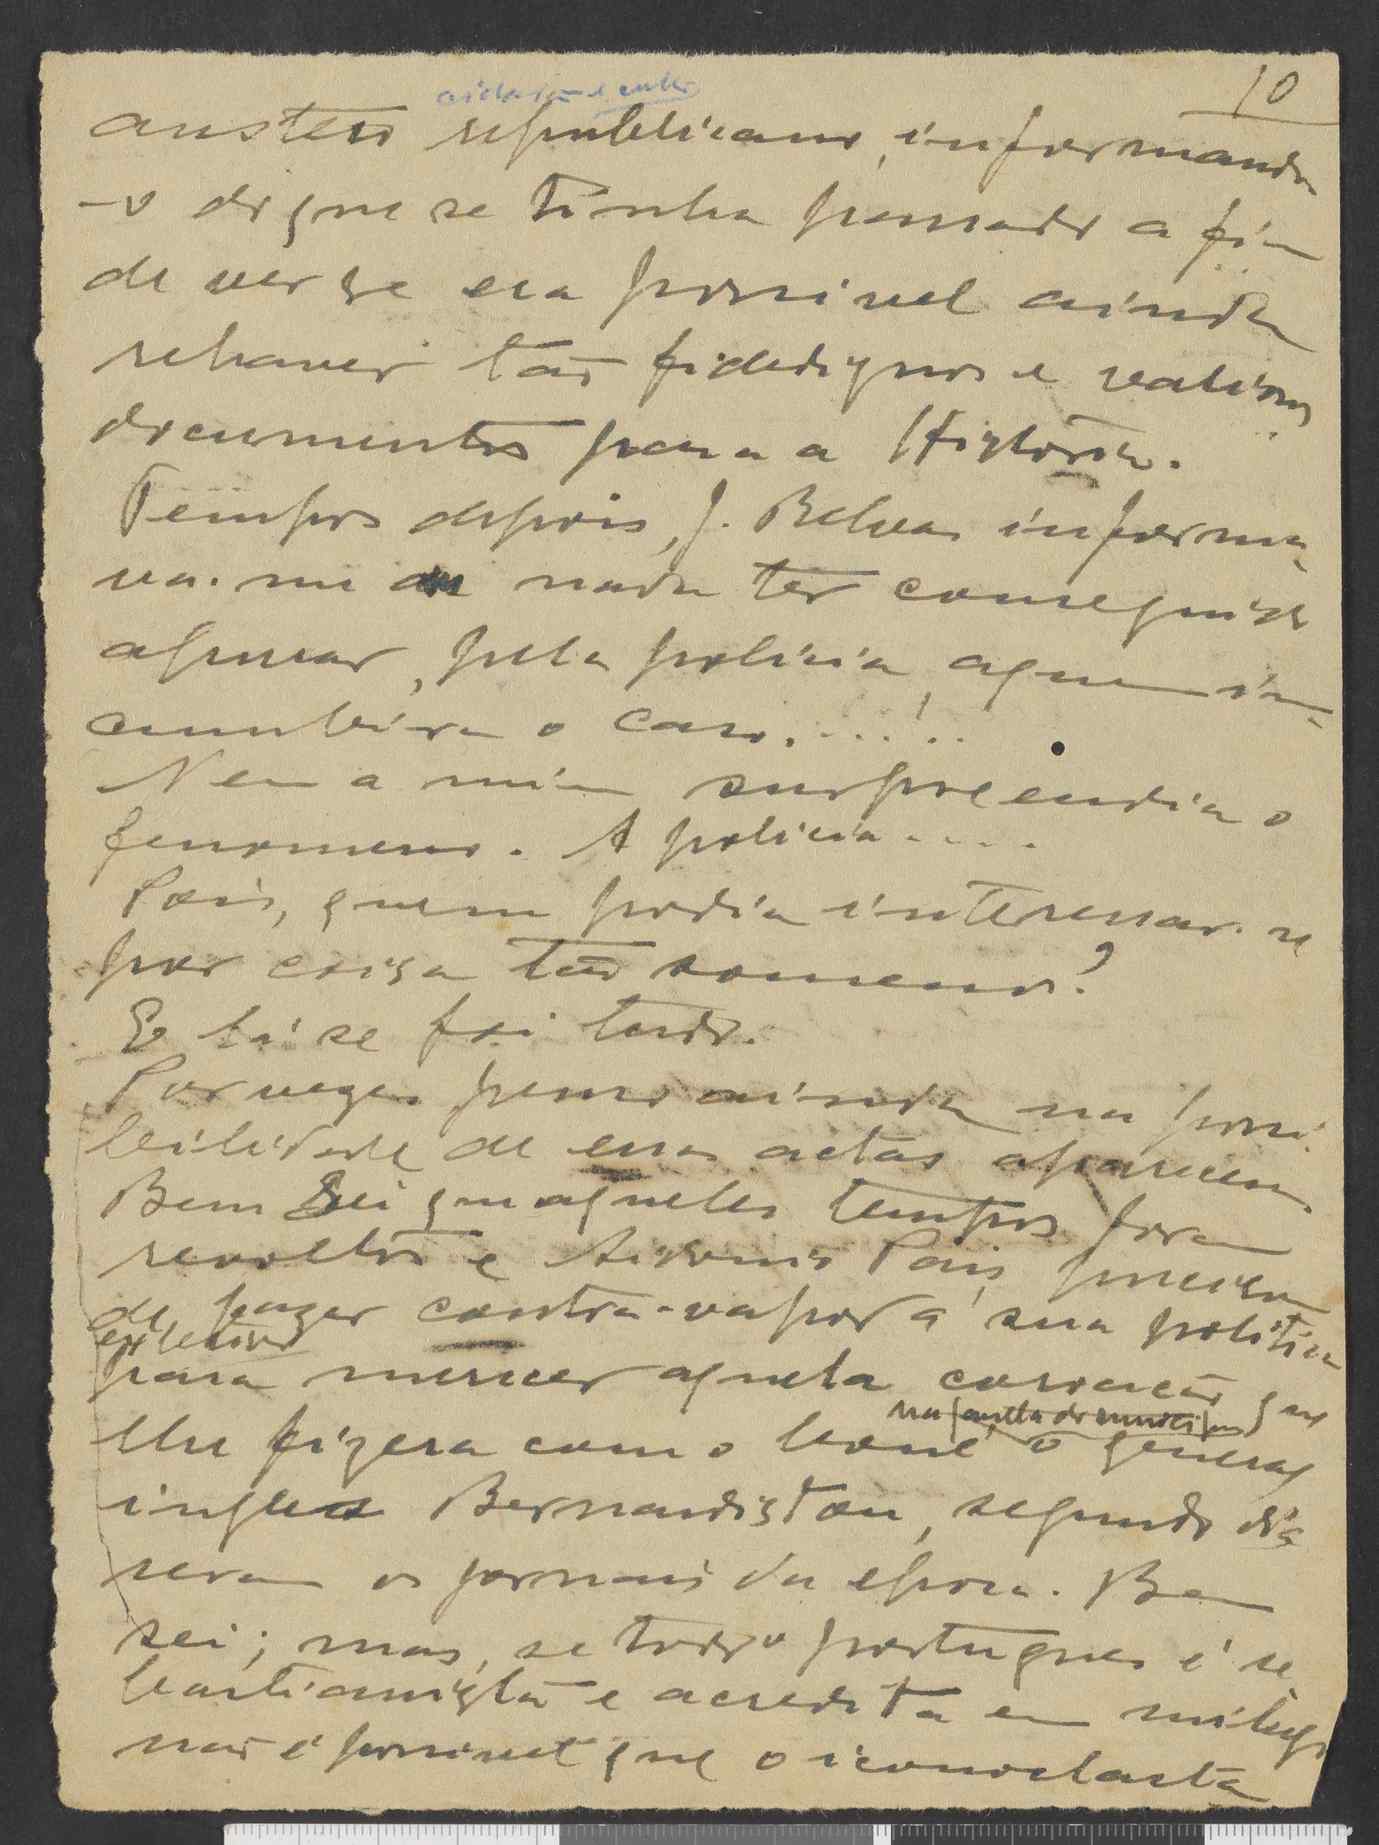 10
austero republicano, informando
-o do que se tinha passado a fim
de ver se era possivel ainda
rehaver tão fidedignos e valiosos
documentos para a História.
Tempos depois, J. Relvas informa
va-me de nada ter conseguido
apurar, pela policia, a quem in-
cumbira o caso......
Nem a mim surpreendia o
fenomeno. A policia....
Pois, quem podia interessar-se
por coisa tão somenos?
E lá se foi tudo.
Por vezes penso ainda na possi
bilidade de essas actas aparecerem.
Bem sei que aqueles tempos foram
revoltos e Sidonio Pais precisou
de fazer contra-vapor á sua politica
exterior
para merecer aquela coroação que
na
lhe fizera com o boné o general
inglês Bernardiston, segundo dis
seram os jornais da epoca. Bem
sei; mas, se todo o português é se
bastianista e acredita em milagres
não é possivel que o iconoclasta